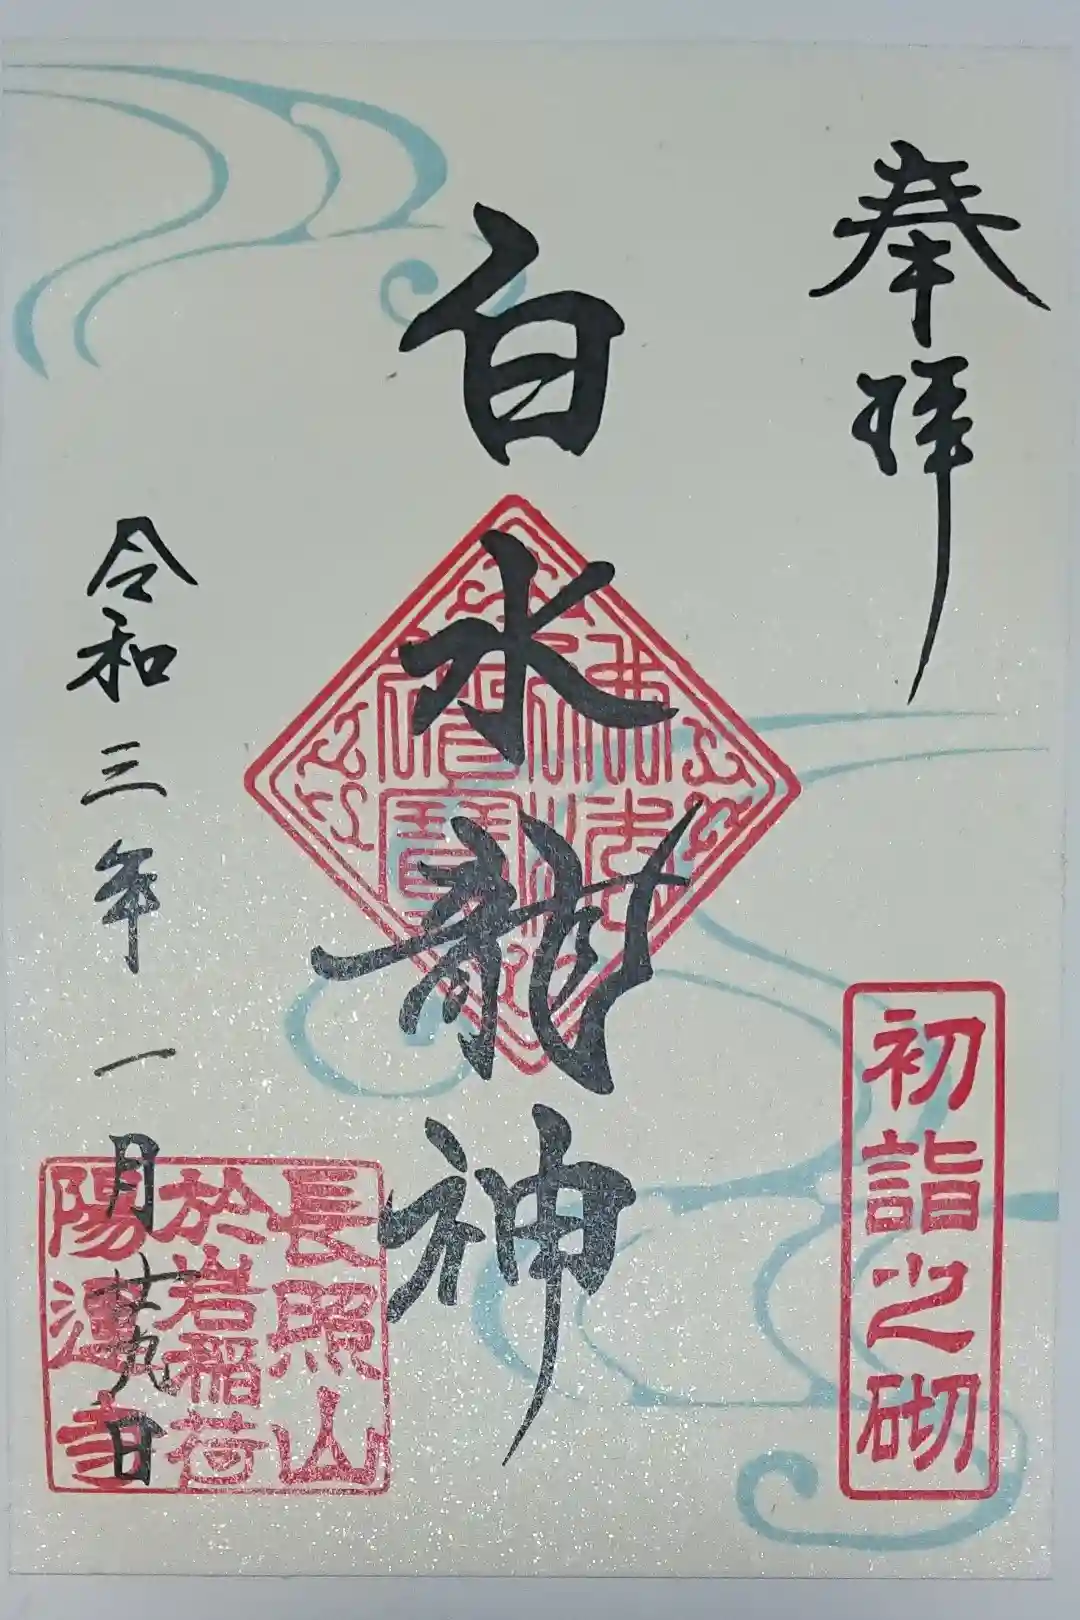 奉拝
初詣之砌
白水龍神
佛法
僧寶
令和三年一月廿九日
長照山
於岩稲荷
陽運寺